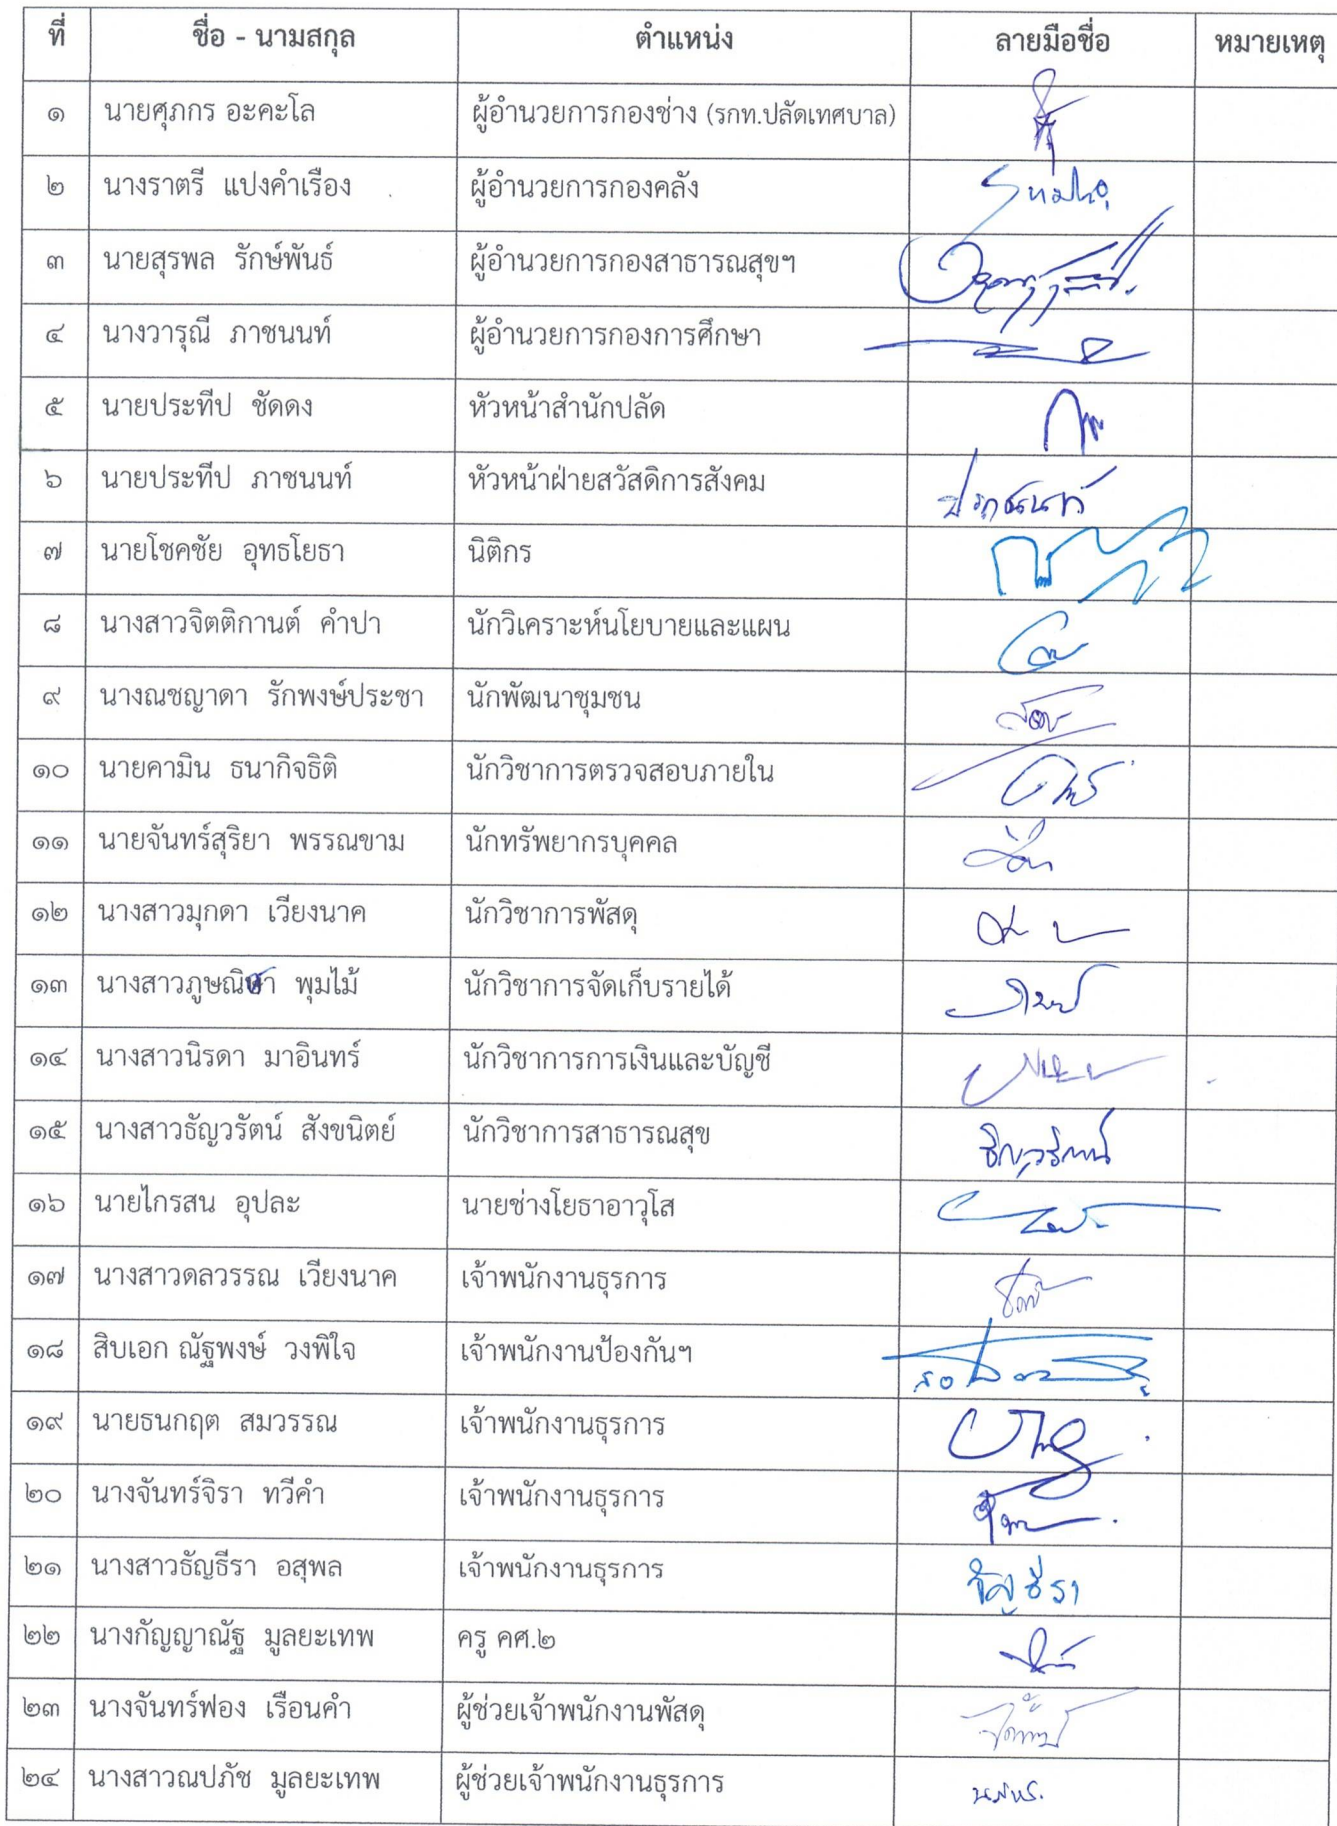 ที่ ชื่อ - นามสกุล ตำแหน่ง ลายมือชื่อ หมายเหตุ
๑ นายศุภกร อะคะโล ผู้อำนวยการกองช่าง (รกท.ปลัดเทศบาล)
๒ นางราตรี แปงคำเรือง ผู้อำนวยการกองคลัง
๓ นายสุรพล รักษ์พันธ์ ผู้อำนวยการกองสาธารณสุขฯ
๔ นางวารุณี ภาชนนท์ ผู้อำนวยการกองการศึกษา
๕ นายประทีป ชัดดง หัวหน้าสำนักปลัด
๖ นายประทีป ภาชนนท์ หัวหน้าฝ่ายสวัสดิการสังคม
๗ นายโชคชัย อุทธโยธา นิติกร
๘ นางสาวจิตติกานต์ คำปา นักวิเคราะห์นโยบายและแผน
๙ นางณชญาดา รักพงษ์ประชา นักพัฒนาชุมชน
๑๐ นายคามิน ธนากิจธิติ นักวิชาการตรวจสอบภายใน
๑๑ นายจันทร์สุริยา พรรณขาม นักทรัพยากรบุคคล
๑๒ นางสาวมุกดา เวียงนาค นักวิชาการพัสดุ
๑๓ พุมไม้ นักวิชาการจัดเก็บรายได้
๑๔ นางสาวนิรดา มาอินทร์ นักวิชาการการเงินและบัญชี
๑๕ นางสาวธัญวรัตน์ สังขนิตย์ นักวิชาการสาธารณสุข
๑๖ นายไกรสน อุปละ นายช่างโยธาอาวุโส
๑๗ นางสาวดลวรรณ เวียงนาค เจ้าพนักงานธุรการ
๑๘ สิบเอก ณัฐพงษ์ วงพิใจ เจ้าพนักงานป้องกันฯ
๑๙ นายธนกฤต สมวรรณ เจ้าพนักงานธุรการ
๒๐ นางจันทร์จิรา ทวีคำ เจ้าพนักงานธุรการ
๒๑ นางสาวธัญธีรา อสุพล เจ้าพนักงานธุรการ ธัญธีรา
๒๒ นางกัญญาณัฐ มูลยะเทพ ครู คศ.๒
๒๓ นางจันทร์ฟอง เรือนคำ ผู้ช่วยเจ้าพนักงานพัสดุ
๒๔ นางสาวณปภัช มูลยะเทพ ผู้ช่วยเจ้าพนักงานธุรการ